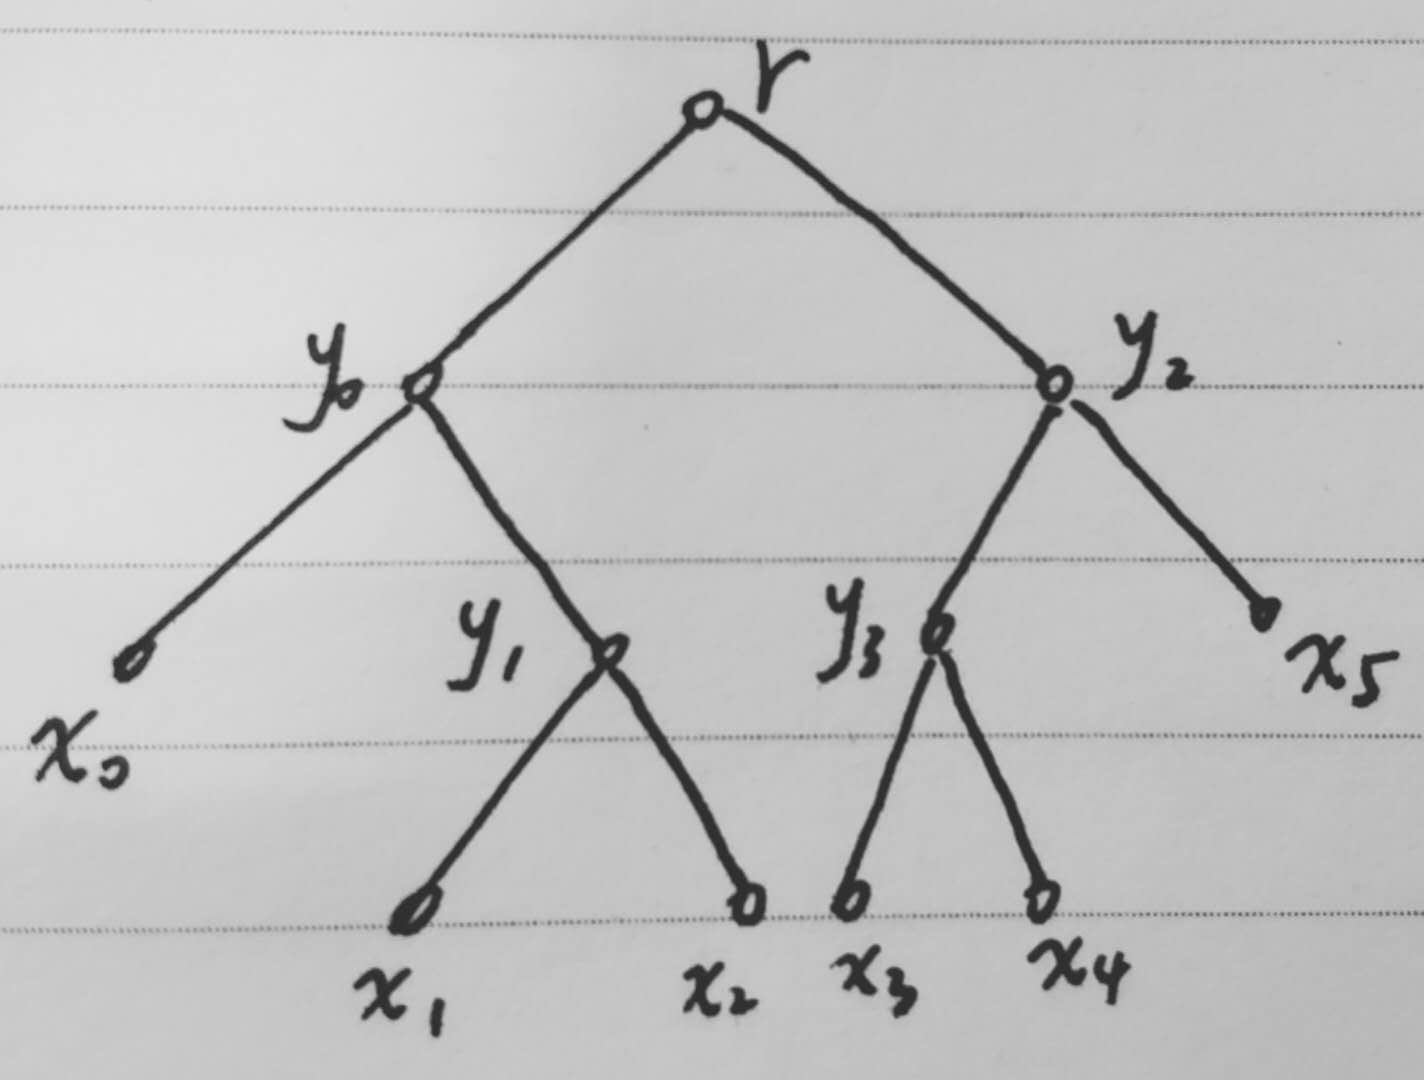 r
y₀ y₂
y₁ y₃ x₅
x₀
x₁ x₂ x₃ x₄